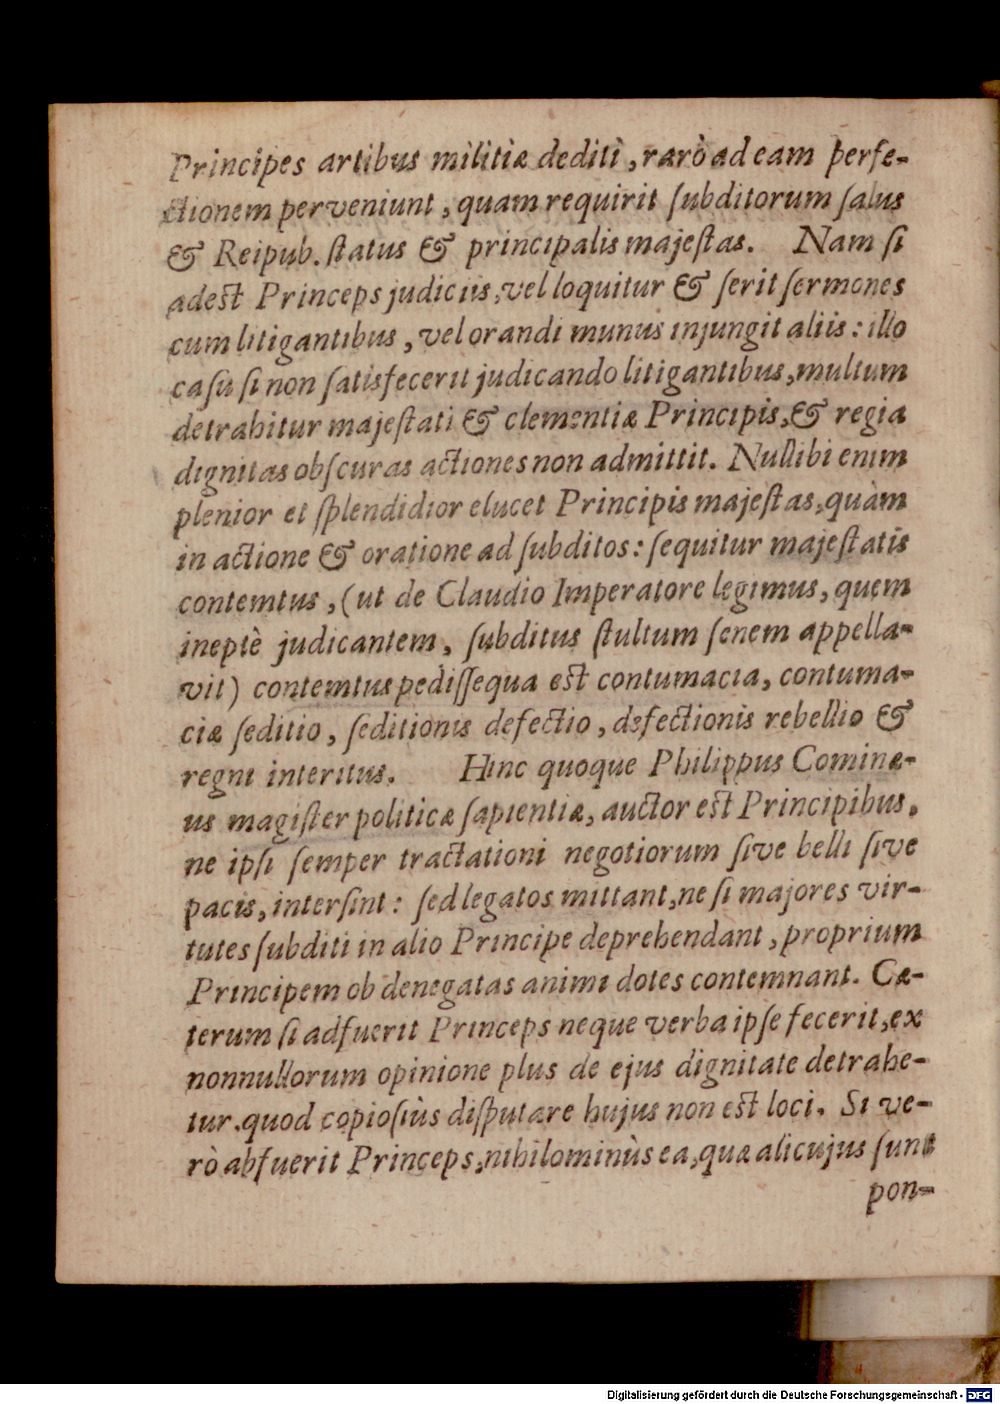 Principes artibus militiæ dediti, rarò ad eam perfe-
ctionem perveniunt, quam requirit ſubditorum ſalus
& Reipub. ſtatus & principalis majeſtas. Nam ſi
adeſt Princeps judiciis, vel loquitur & ſerit ſermones
cum litigantibus, vel orandi munus injungit aliis: illo
caſu ſi non ſatisfecerit judicando litigantibus, multum
detrahitur majeſtati & clementiæ Principis, & regia
dignitas obſcuras actiones non admittit. Nullibi enim
plenior et ſplendidior elucet Principis majeſtas, quàm
in actione & oratione ad ſubditos: ſequitur majeſtatis
contemtus, (ut de Claudio Imperatore legimus, quem
ineptè judicantem, ſubditus ſtultum ſenem appella-
vit) contemtus pediſſequa eſt contumacia, contuma-
ciæ ſeditio, ſeditionis defectio, defectionis rebellio &
regni interitus. Hinc quoque Philippus Cominæ-
us magiſter politicæ ſapientiæ, auctor eſt Principibus,
ne ipſi ſemper tractationi negotiorum ſive belli ſive
pacis, interſint: ſed legatos mittant, ne ſi majores vir-
tutes ſubditi in alio Principe deprehendant, proprium
Principem ob denegatas animi dotes contemnant. Cæ-
terum ſi adfuerit Princeps neque verba ipſe fecerit, ex
nonnullorum opinione plus de ejus dignitate detrahe-
tur. quod copioſiùs diſputare hujus non eſt loci. Si ve-
rò abfuerit Princeps, nihilominùs ea, quæ alicujus ſunt
pon-
Digitalisierung gefördert durch die Deutsche Forschungsgemeinschaft - DFG